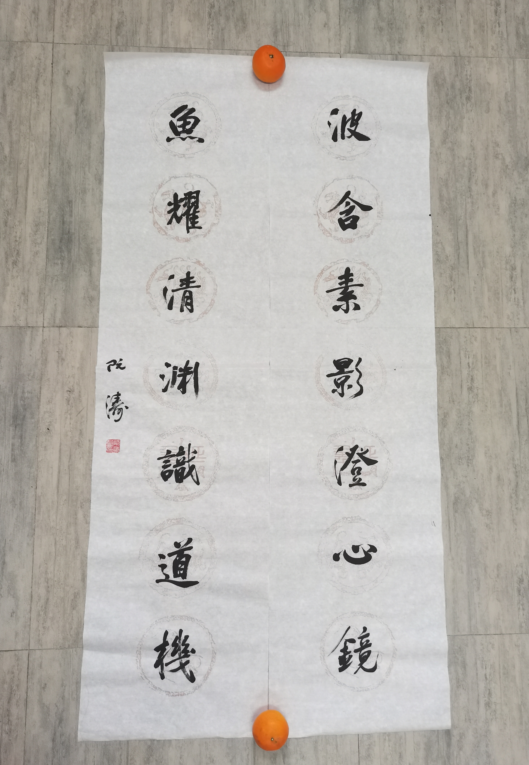 波含素影澄心鏡
魚耀清渊識道機
阮濤